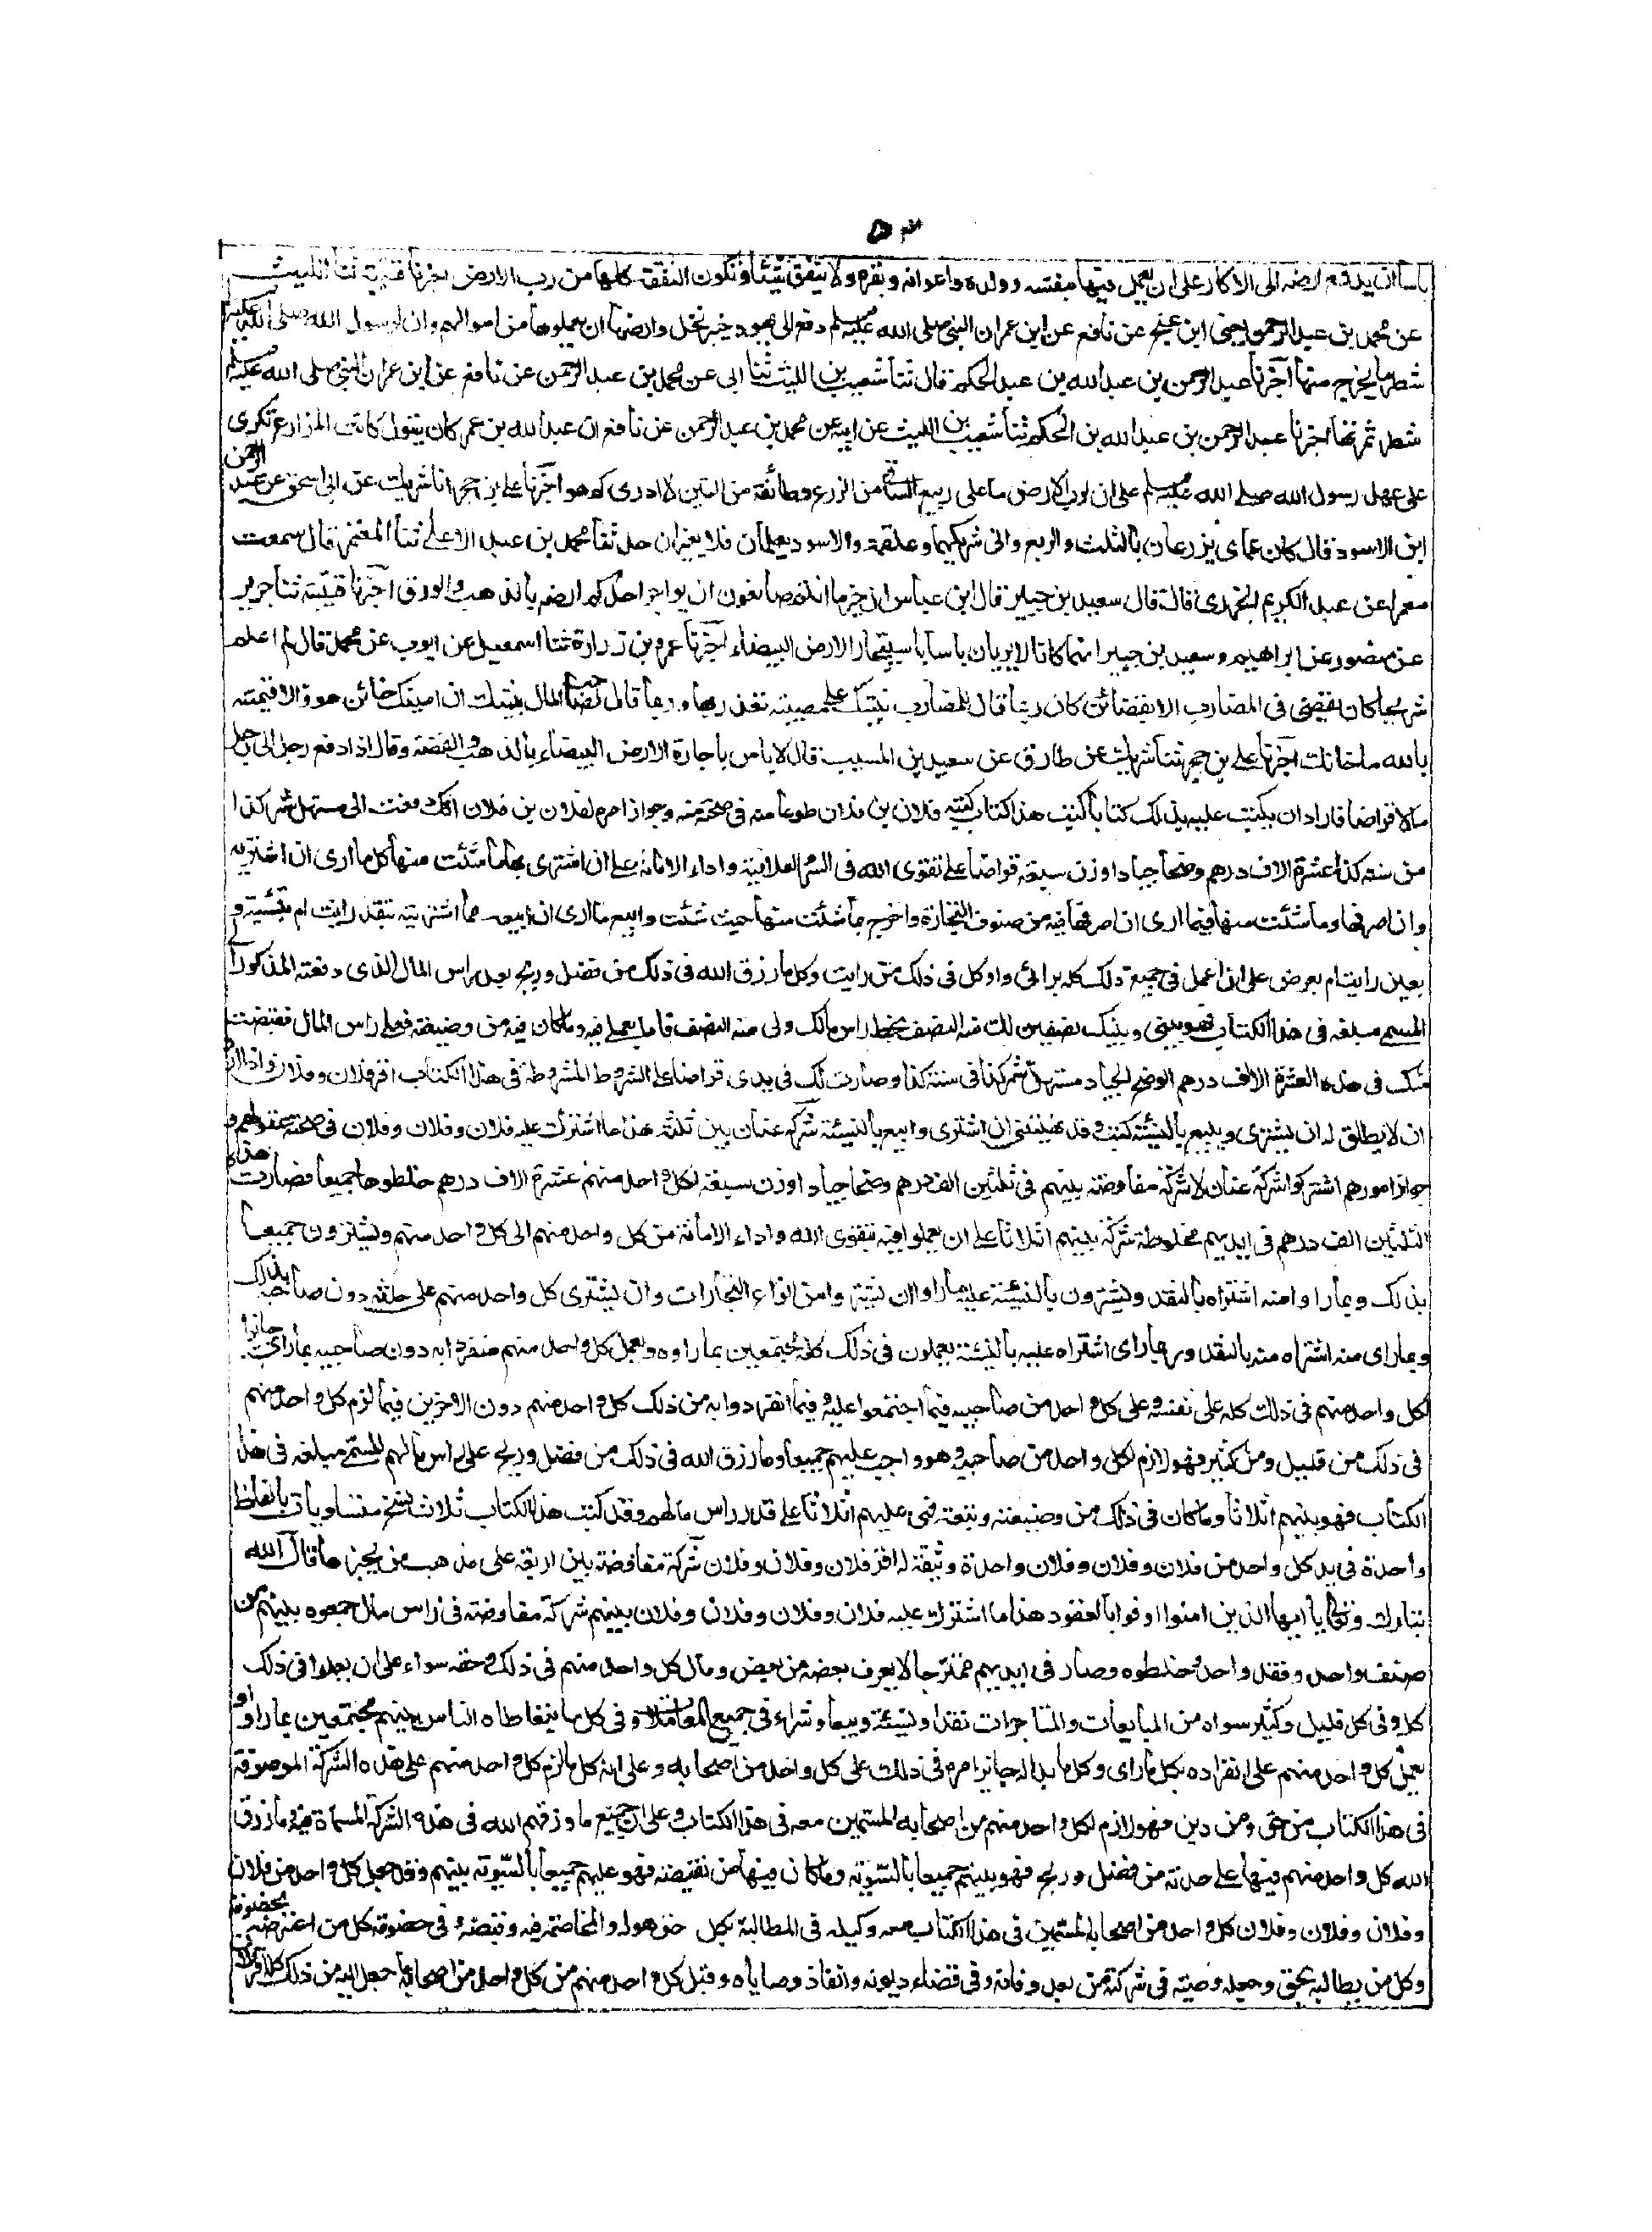 باسا ان يدفع ارضه الى الاكار على ان يعمل فيها بنفسه وولده واعوانه وبقره ولا ينفق شيئا وتكون النفقة كلها من رب الارض اخبرنا قتيبة ثنا الليث
عن محمد بن عبد الرحمن يعنى ابن غنج عن نافع عن ابن عمر ان النبى صلى الله عليه وسلم دفع الى يهود خيبر نخل وارضها ان يعملوها من اموالهم وان لرسول الله صلى الله عليه
شطر ما يخرج منها اخبرنا عبد الرحمن بن عبد الله بن عبد الحكم قال ثنا شعيب بن الليث ثنا ابى عن محمد بن عبد الرحمن عن نافع عن ابن عمر ان النبى صلى الله عليه وسلم
شطر ثمرتها اخبرنا عبد الرحمن بن عبد الله بن الحكم ثنا شعيب بن الليث عن ابيه عن محمد بن عبد الرحمن عن نافع ان عبد الله بن عمر كان يقول كانت المزارع تكرى
على عهد رسول الله صلى الله عليه وسلم على ان لرب الارض ما على ربيع الساقى من الزرع وطائفة من التبن لا ادرى كم هو اخبرنا على بن حجر انا شريك عن ابى اسحق عن عبد الرحمن
ابن الاسود قال كان عماى يزرعان بالثلث والربع وانى شريكهما وعلقمة والاسود يعلمان فلا يغيران حدثنا محمد بن عبد الاعلى ثنا المعتمر قال سمعت
معمرا عن عبد الكريم الجزرى قال قال سعيد بن جبير قال ابن عباس ان خير ما انتم صانعون ان يواجر احدكم ارضه بالذهب والورق اخبرنا قتيبة ثنا جرير
عن منصور عن ابراهيم وسعيد بن جبير انهما كانا لا يريان باسا باستيجار الارض البيضاء اخبرنا عمرو بن زرارة ثنا اسمعيل عن ايوب عن محمد قال لم اعلم
شريحا كان يقضى فى المضارب الا بقضائين كان ربما قال للمضارب بينتك على مصيبة تعذر بها وربما قال لصاحب المال بينتك ان امينك خائن والا فيمينه
بالله ما خانك اخبرنا على بن حجر ثنا شريك عن طارق عن سعيد بن المسيب قال لا باس باجارة الارض البيضاء بالذهب والفضة وقال اذا دفع رجل الى رجل
مالا قراضا فاراد ان يكتب عليه بذلك كتابا كتب هذا كتاب كتبه فلان بن فلان طوعا منه فى صحة منه وجواز امره لفلان بن فلان انك دفعت الى مستهل شهر كذا
من سنة كذا عشرة الاف درهم وضحا جيادا وزن سبعة قراضا على تقوى الله فى السر والعلانية واداء الامانة على ان اشترى بها ما شئت منها كل ما ارى ان اشتريه
وان اصرفها وما شئت منها فيما ارى ان اصرفها فيه من صنوف التجارة واخرج بما شئت منها حيث شئت وابيع ما ارى ان ابيعه مما اشتريته بنقد رايت ام بنسيئة و
بعين رايت ام بعرض على ان اعمل فى جميع ذلك كله برائى واوكل فى ذلك من رايت وكل ما رزق الله فى ذلك من فضل وربح بعد راس المال الذى دفعته المذكور الى
المسمى مبلغه فى هذا الكتاب فهو بينى وبينك نصفين لك منه النصف بحظ راس مالك ولى منه النصف تاما بعملى فيه وما كان فيه من وضيعة فعلى راس المال فقبضت
منك فى هذه العشرة الالف درهم الوضح الجياد مستهل شهر كذا فى سنة كذا وصارت لك فى يدى قراضا على الشروط المشروطة فى هذا الكتاب اقر فلان وفلان واذا اراد
ان لا يطلق له ان يشترى ويبيع بالنسيئة كتب وقد نهيتنى ان اشترى وابيع بالنسيئة شركة عنان بين ثلثة هذا ما اشترك عليه فلان وفلان وفلان فى صحة عقولهم و
جواز امورهم اشتركوا شركة عنان لا شركة مفاوضة بينهم فى ثلثين الف درهم وضحا جيادا وزن سبعة لكل واحد منهم عشرة الاف درهم خلطوها جميعا فصارت هذه
الثلثين الف درهم فى ايديهم مخلوطة شركة بينهم اثلاثا على ان يعملوا فيه بتقوى الله واداء الامانة من كل واحد منهم الى كل واحد منهم ويشترون جميعا
بذلك وبما راوا منه اشتراه بالنقد ويشترون بالنسيئة عليه ما راوا ان يشتروا من انواع التجارات وان يشترى كل واحد منهم على حدته دون صاحبه بذلك
وبما راى منه اشتراه منه بالنقد وبما راى اشتراه عليه بالنسيئة يعملون فى ذلك كله مجتمعين بما راوه ويعمل كل واحد منهم منفردا به دون صاحبيه بما راى جائزا
لكل واحد منهم فى ذلك كله على نفسه وعلى كل واحد من صاحبيه فيما اجتمعوا عليه وفيما انفردوا به من ذلك كل واحد منهم دون الاخرين فيما لزم كل واحد منهم
فى ذلك من قليل ومن كثير فهو لازم لكل واحد من صاحبيه وهو واجب عليهم جميعا وما رزق الله فى ذلك من فضل وربح على راس مالهم المسمى مبلغه فى هذا
الكتاب فهو بينهم اثلاثا وما كان فى ذلك من وضيعة وتبعة فهى عليهم اثلاثا على قدر راس مالهم وقد كتب هذا الكتاب ثلاث نسخ متساويات بالفاظ
واحدة فى يد كل واحد من فلان وفلان وفلان واحدة وثيقة له اقر فلان وفلان وفلان شركة مفاوضة بين اربعة على مذهب من يجيزها قال الله
تبارك وتعالى يا ايها الذين امنوا اوفوا بالعقود هذا ما اشترك عليه فلان وفلان وفلان وفلان بينهم شركة مفاوضة فى راس مال جمعوه بينهم من
صنف واحد ونقد واحد وخلطوه وصار فى ايديهم ممتزجا لا يعرف بعضه من بعض ومال كل واحد منهم فى ذلك وحقه سواء على ان يعملوا فى ذلك
كله وفى كل قليل وكثير سواه من المبايعات والمتاجرات نقدا ونسيئة وبيعا وشراء فى جميع المعاملات وفى كل ما يتعاطاه الناس بينهم مجتمعين بما راوا و
يعمل كل واحد منهم على انفراده بكل ما راى وكل ما بدا له جائز امره فى ذلك على كل واحد من اصحابه وعلى انه كل ما لزم كل واحد منهم على هذه الشركة الموصوفة
فى هذا الكتاب من حق ومن دين فهو لازم لكل واحد منهم من اصحابه المسمين معه فى هذا الكتاب وعلى ان جميع ما رزقهم الله فى هذه الشركة المسماة فيه وما رزق
الله كل واحد منهم فيها على حدته من فضل وربح فهو بينهم جميعا بالسوية وما كان فيها من نقيصة فهو عليهم جميعا بالسوية بينهم وقد جعل كل واحد من فلان
وفلان وفلان وفلان كل واحد من اصحابه المسمين فى هذا الكتاب معه وكيله فى المطالبة بكل حق هو له والمخاصمة فيه وقبضه وفى خصومة كل من اعترضه بخصومة
وكل من يطالبه بحق وجعله وصيه فى شركته من بعد وفاته وفى قضاء ديونه وانفاذ وصاياه وقبل كل واحد منهم من كل واحد من اصحابه ما جعل اليه من ذلك كله